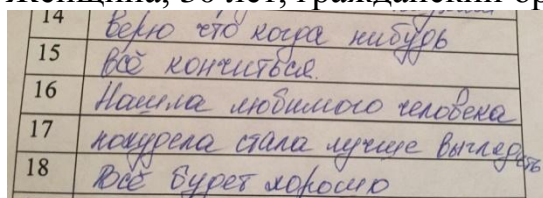 Женщина, 30 лет, гражданский бр
14 Верю что когда нибудь
15 всё кончиться.
16 Нашла любимого человека
17 похудела стала лучше выглядеть
18 Всё будет хорошо